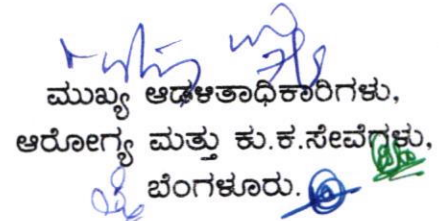 ಮುಖ್ಯ ಆಡಳಿತಾಧಿಕಾರಿಗಳು,
ಆರೋಗ್ಯ ಮತ್ತು ಕು.ಕ.ಸೇವೆಗಳು,
ಬೆಂಗಳೂರು.